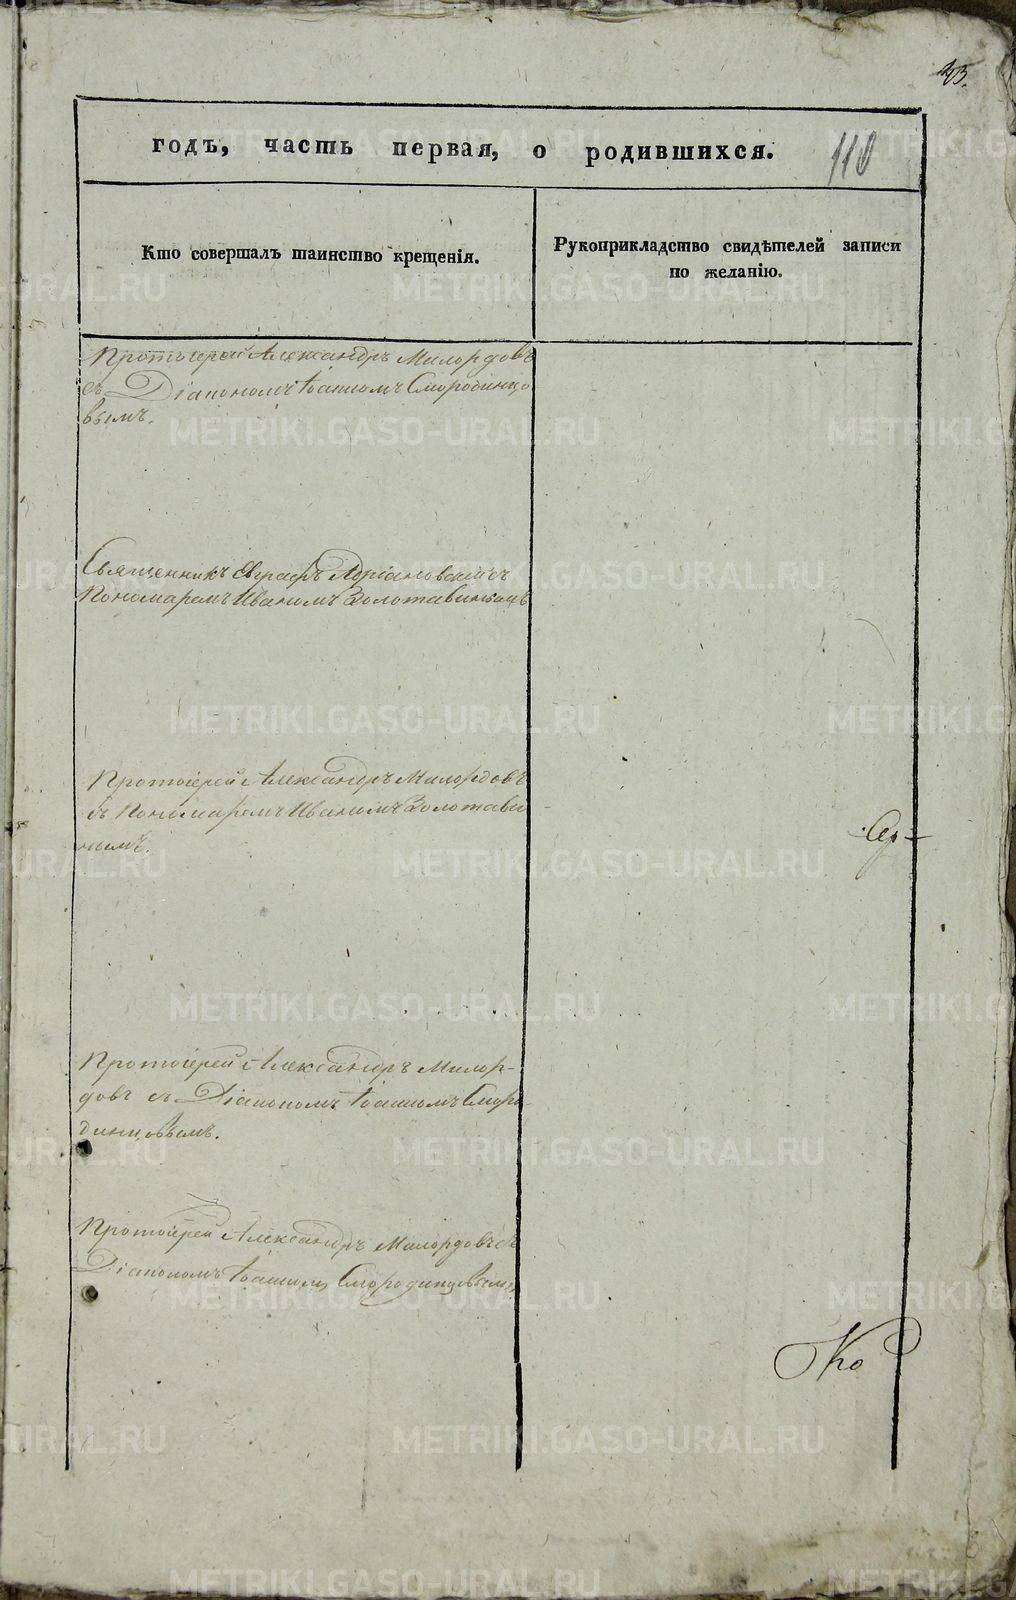 годъ, часть первая, о родившихся.
110
Кто совершалъ таинство крещенія.
Рукоприкладство свидѣтелей записи
по желанію.
Протоіерей Александръ Милордовъ
съ Діакономъ Іоанномъ Смородинцо
вымъ.
Священникъ Евграфъ Адріановскій съ
Пономаремъ Иваномъ Золотавинымъ
Протоіерей Александръ Милордовъ
съ Пономаремъ Иваномъ Золотави
нымъ.
Протоіерей Александръ Милор-
довъ съ Діакономъ Іоанномъ Сморо
динцовымъ.
Протоіерей Александръ Милордовъ съ
Діакономъ Іоанномъ Смородинцовымъ
Ко
METRIKI.GASO-URAL.RU